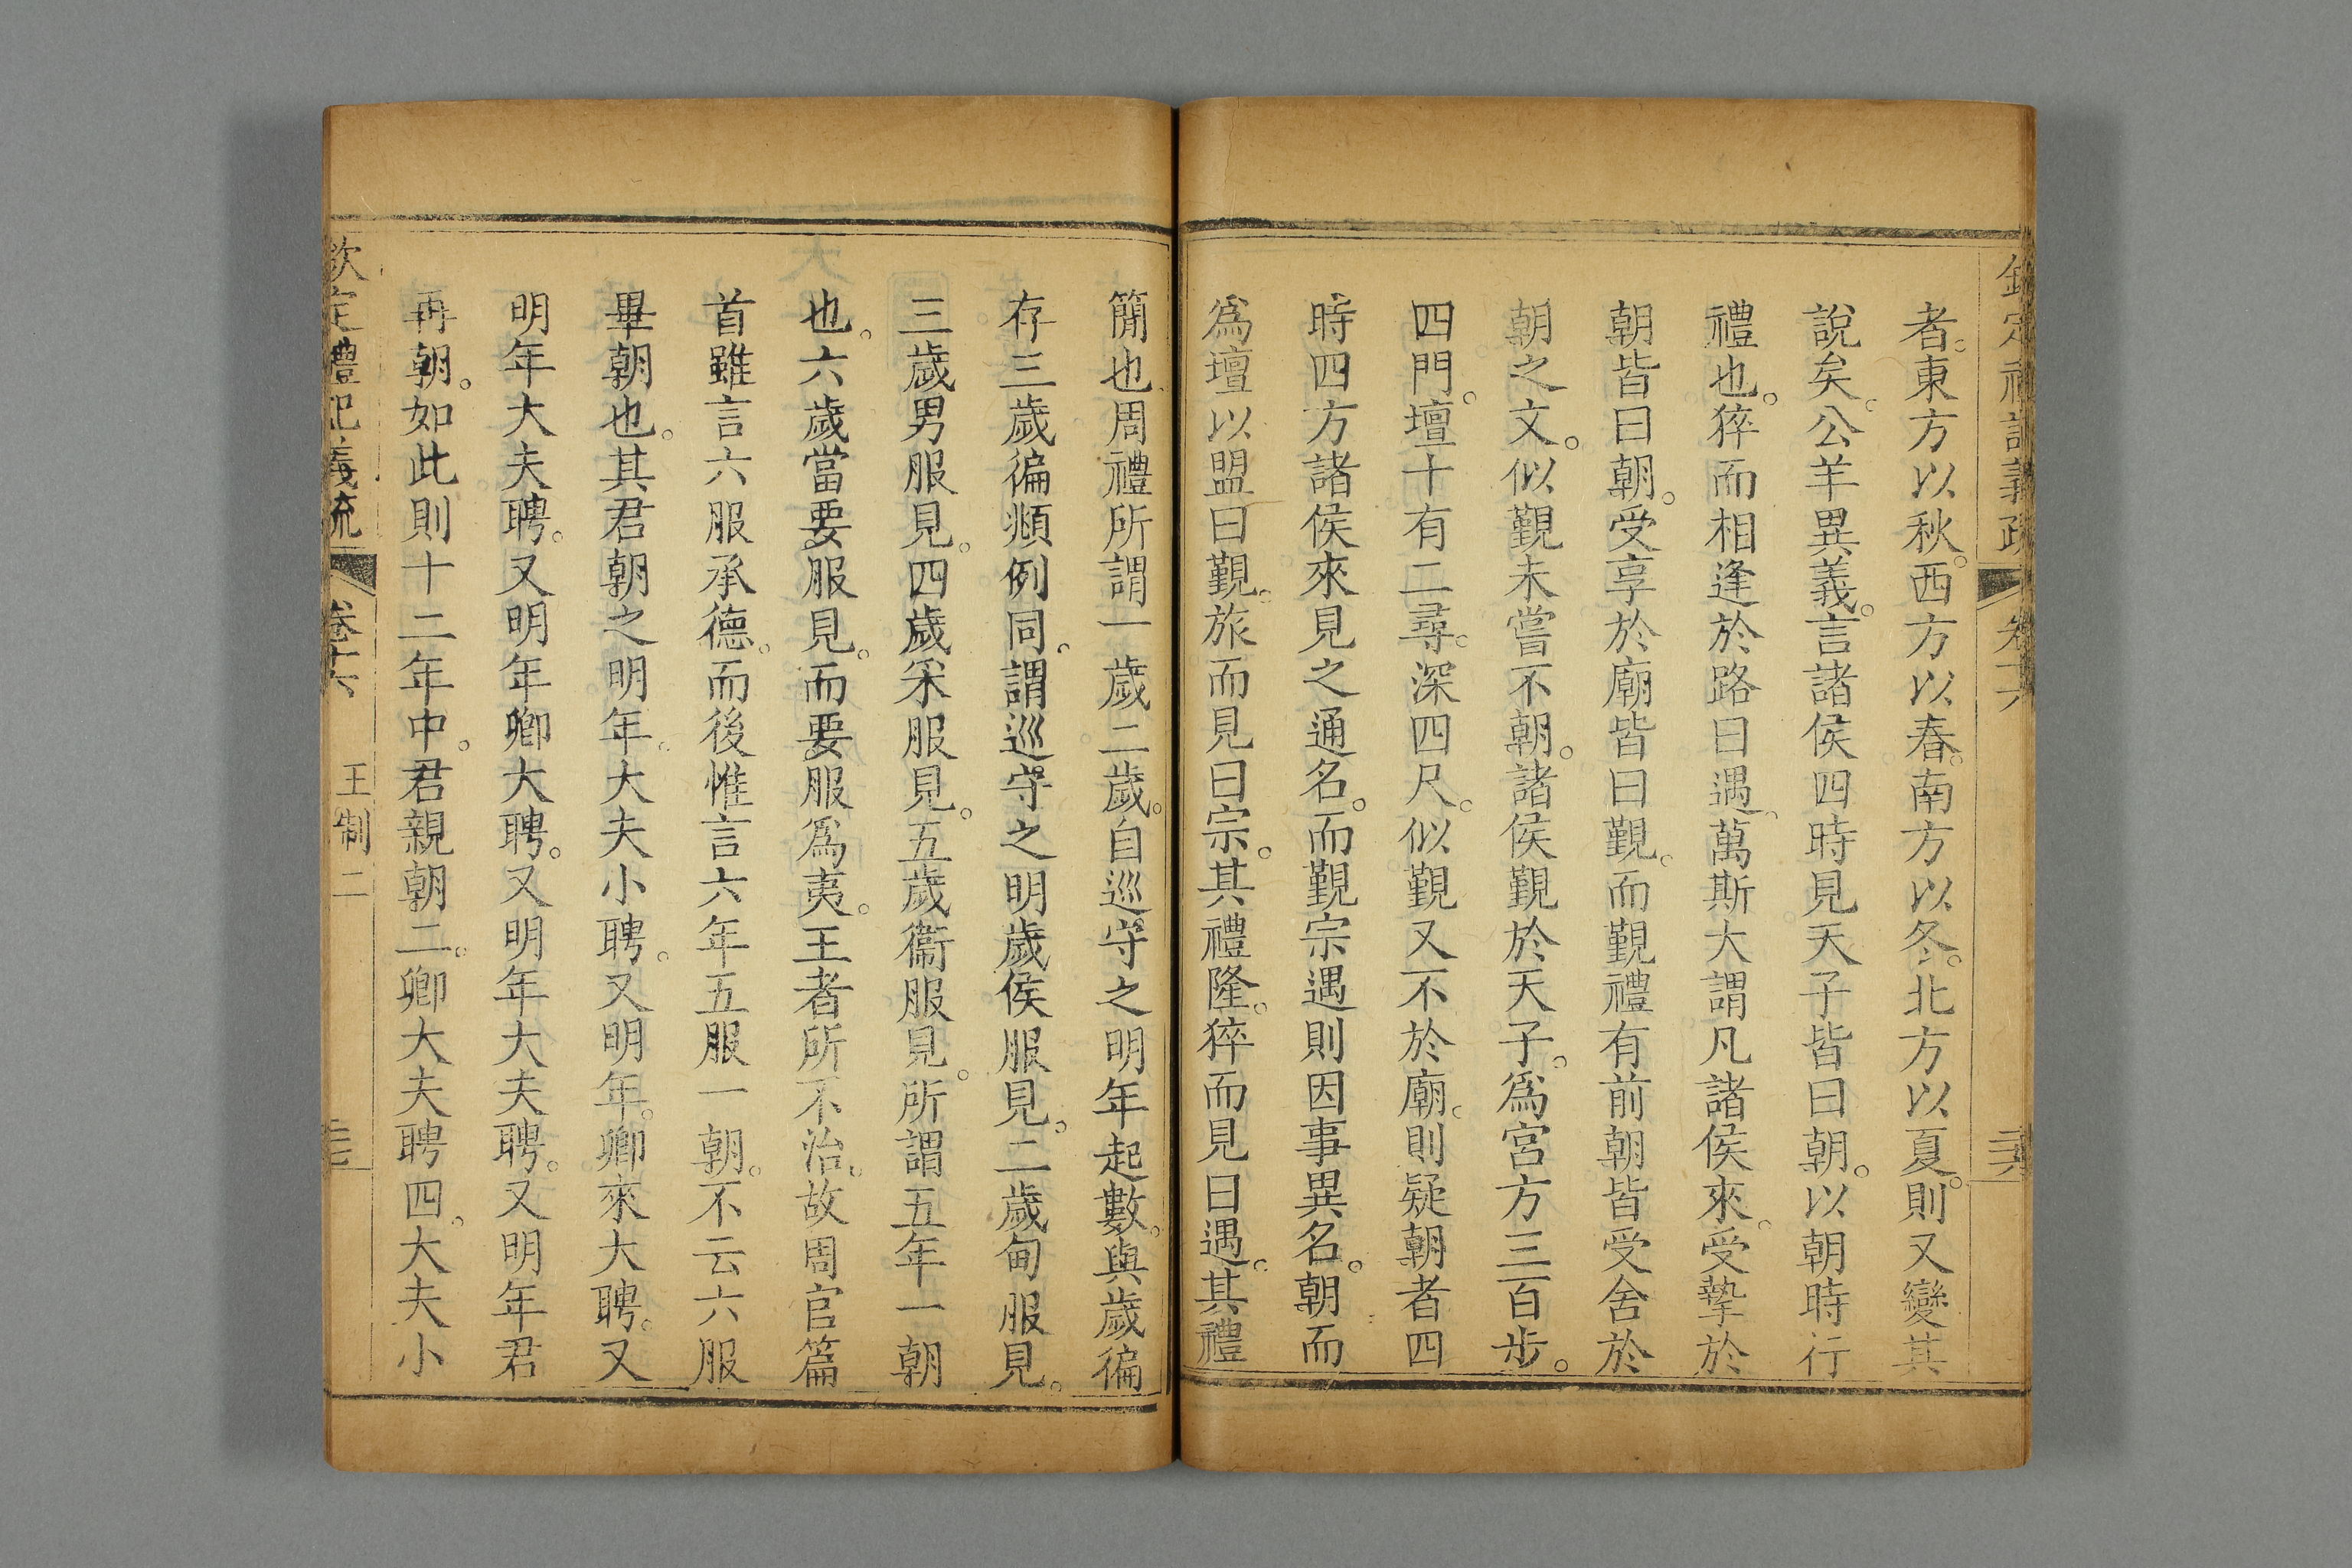 者。東方以秋。西方以春。南方以冬。北方以夏。則又變其
說矣。公羊異義。言諸侯四時見天子皆曰朝。以朝時行
禮也。猝而相逢於路曰遇。萬斯大謂凡諸侯來。受摯於
朝皆曰朝。受享於廟皆曰覲。而覲禮有前朝皆受舍於
朝之文。似覲未嘗不朝。諸侯覲於天子。爲宮方三百步。
四門。壇十有二尋。深四尺。似覲又不於廟。則疑朝者四
時四方諸侯來見之通名。而覲宗遇則因事異名。朝而
爲壇以盟曰覲。旅而見曰宗。其禮隆。猝而見曰遇。其禮
簡也周禮所謂一歲二歲。自巡守之明年起數。與歲徧
存三歲徧覜例同。謂巡守之明歲侯服見。二歲甸服見。
三歲男服見。四歲采服見。五歲衞服見。所謂五年一朝
也。六歲當要服見。而要服爲夷。王者所不治。故周官篇
首雖言六服承德。而後惟言六年五服一朝。不云六服
畢朝也。其君朝之明年。大夫小聘。又明年。卿來大聘。又
明年大夫聘。又明年卿大聘。又明年大夫聘。又明年君
再朝。如此則十二年中。君親朝二。卿大夫聘四。大夫小
欽定禮記義疏 卷十六 王制二